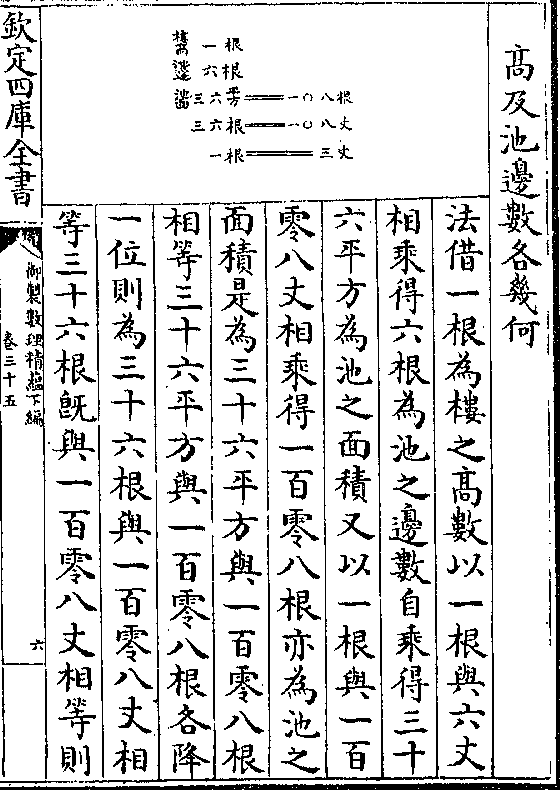 高及池邊數各幾何
樓高 一根
池邊 六根
池積 三六方 一〇八根
三六根 一〇八丈
一根 三丈
法借一根為樓之高數以一根與六丈
相乘得六根為池之邊數自乘得三十
六平方為池之面積又以一根與一百
零八丈相乘得一百零八根亦為池之
面積是為三十六平方與一百零八根
相等三十六平方與一百零八根各降
一位則為三十六根與一百零八丈相
等三十六根既與一百零八丈相等則
欽定四庫全書
御製數理精蘊下編
卷三十五
六